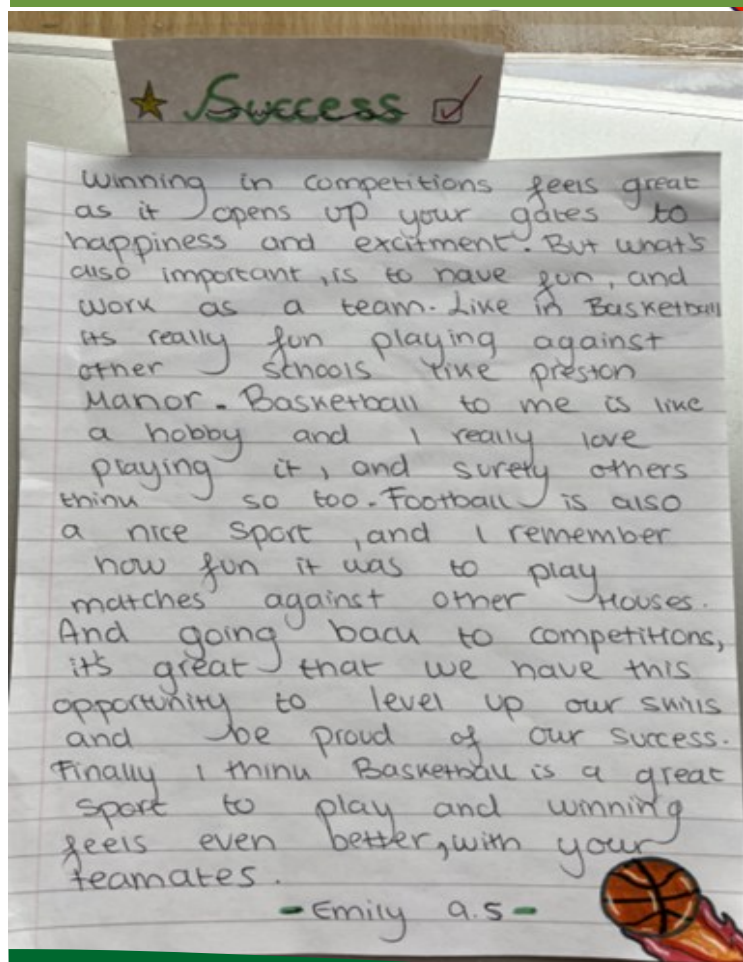 Success
Winning in competitions feels great
as it opens up your gates to
happiness and excitment. But what's
also important, is to have fun, and
work as a team. Like in Basketball
its really fun playing against
other schools like preston
Manor. Basketball to me is like
a hobby and I really love
playing it, and surely others
think so too. Football is also
a nice sport, and I remember
how fun it was to play
matches against other Houses.
And going back to competitions,
it's great that we have this
opportunity to level up our skills
and be proud of our success.
Finally I think Basketball is a great
sport to play and winning
feels even better, with your
teamates.
- Emily 9.5 -